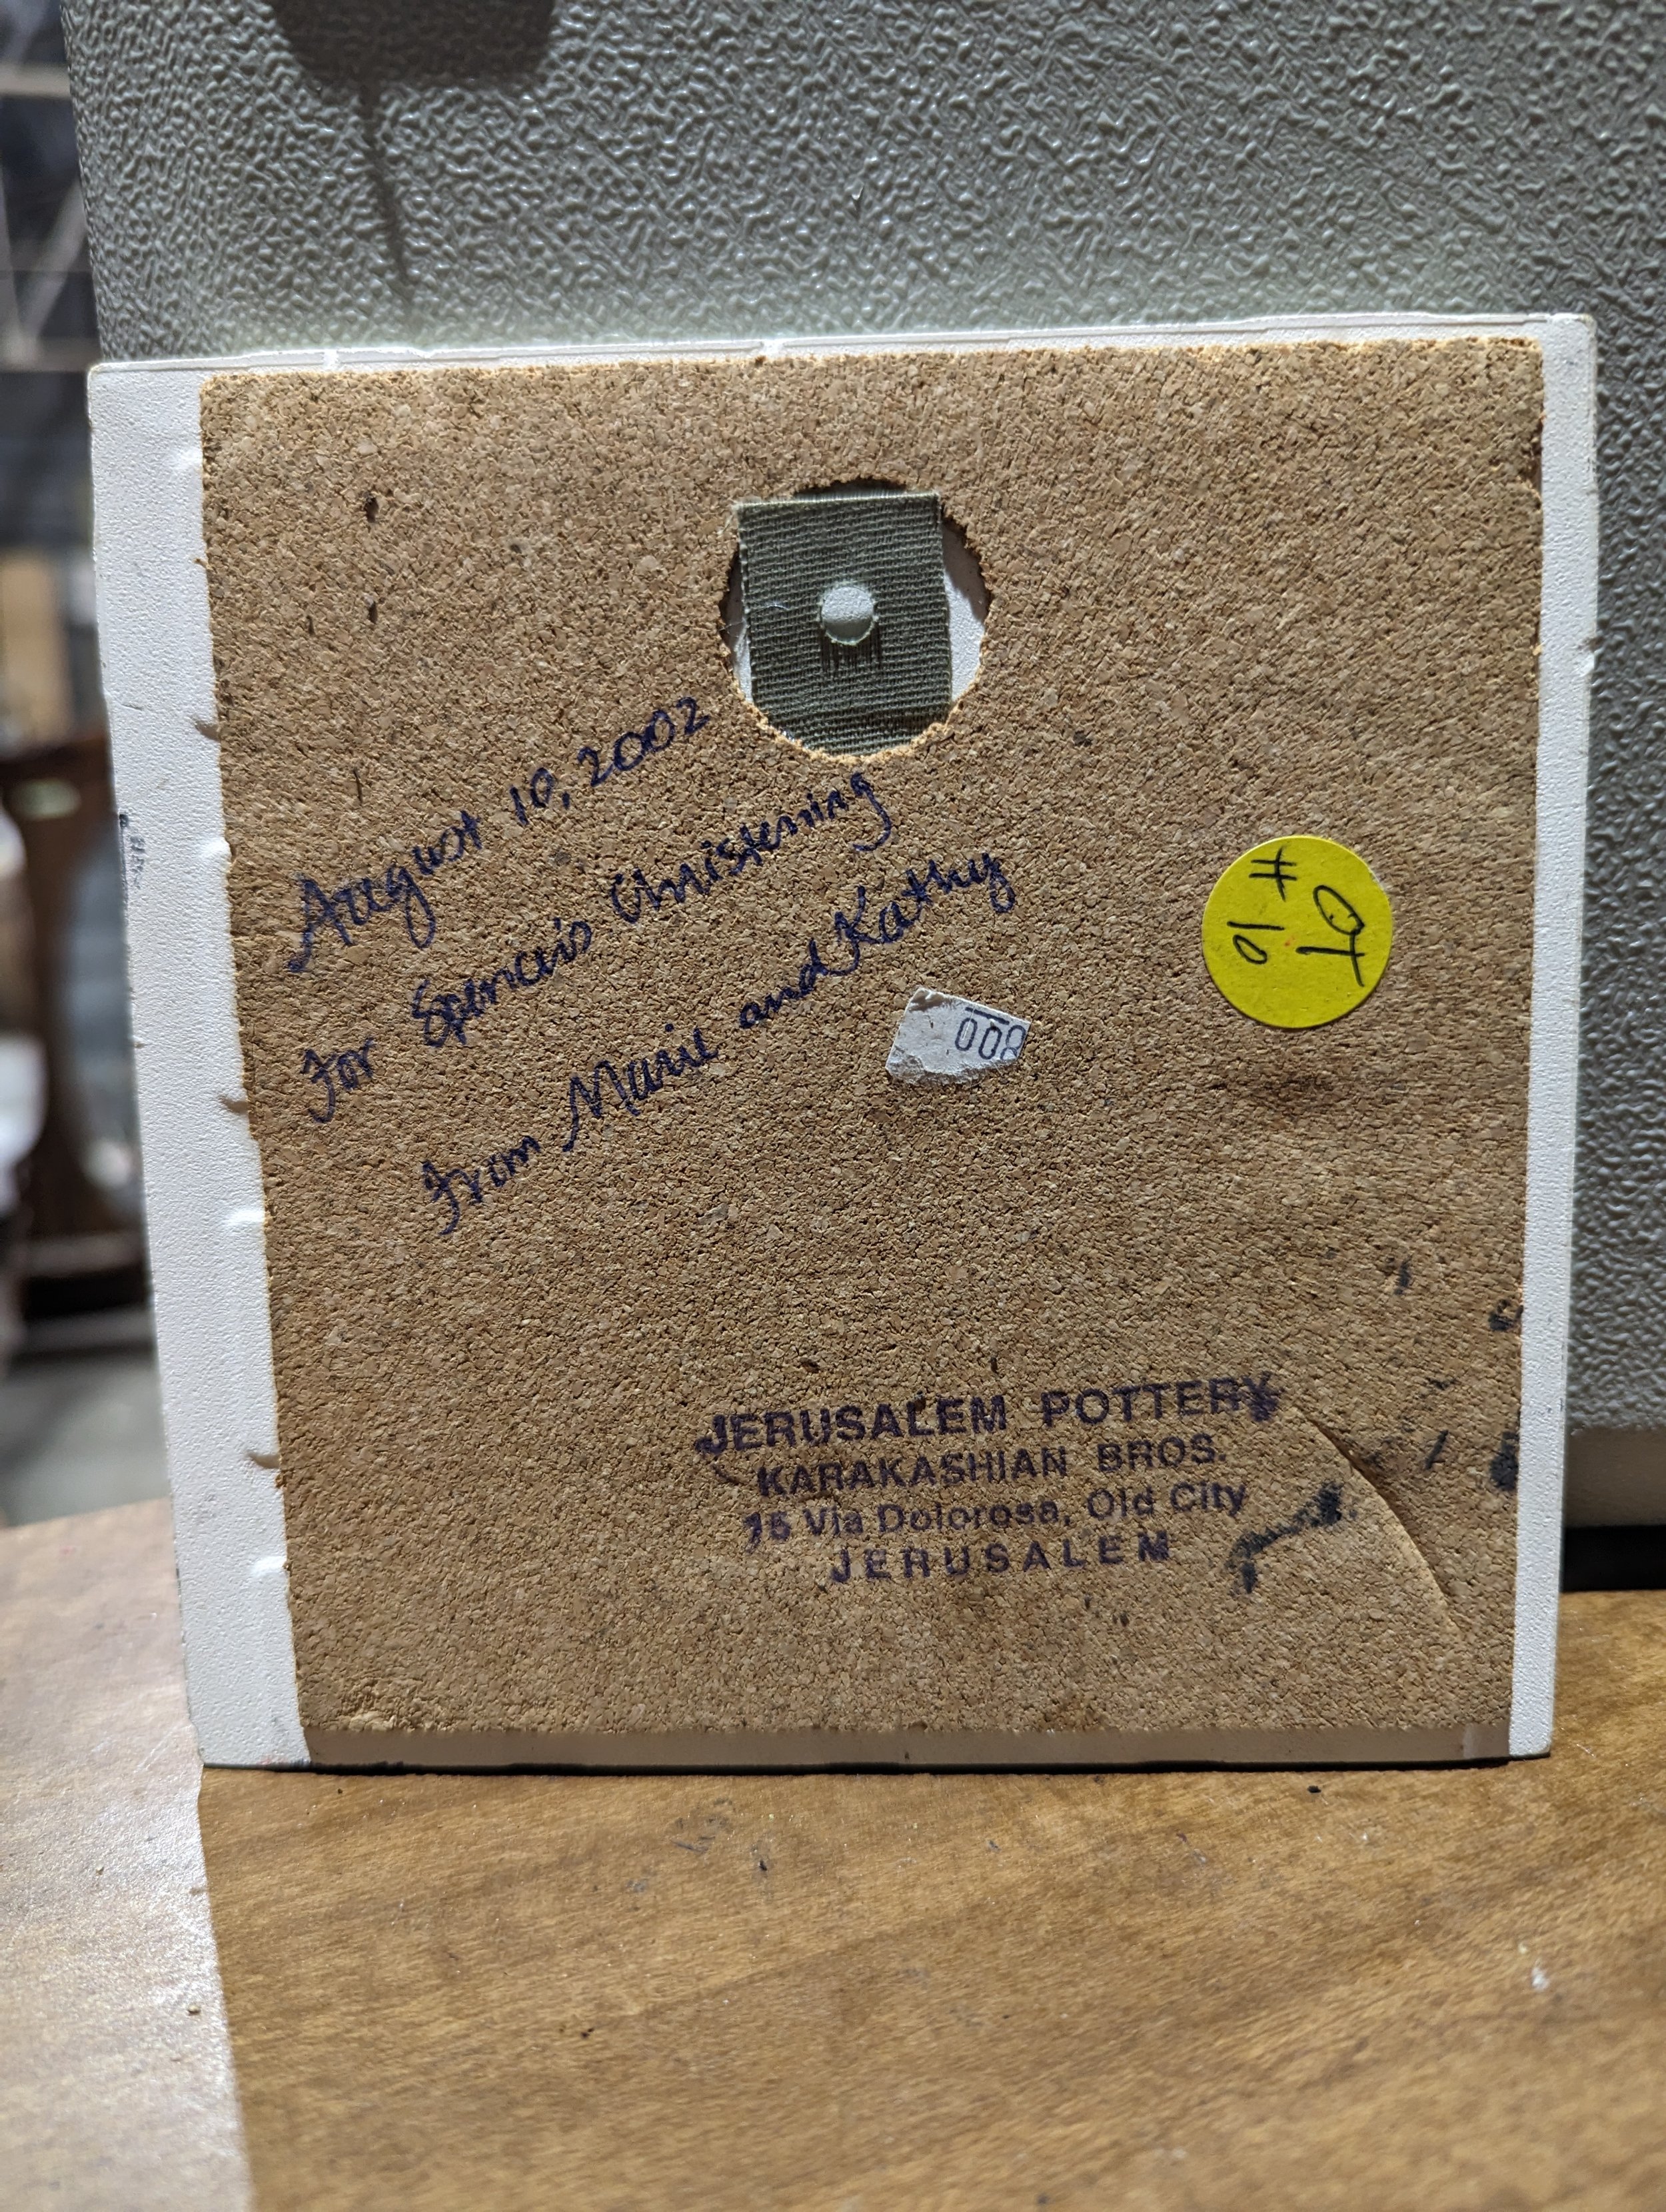 August 10, 2002
For Spencer's Christening
From Marie and Kathy
OT
# 10
008
JERUSALEM POTTERY
KARAKASHIAN BROS.
15 Via Dolorosa, Old City
JERUSALEM